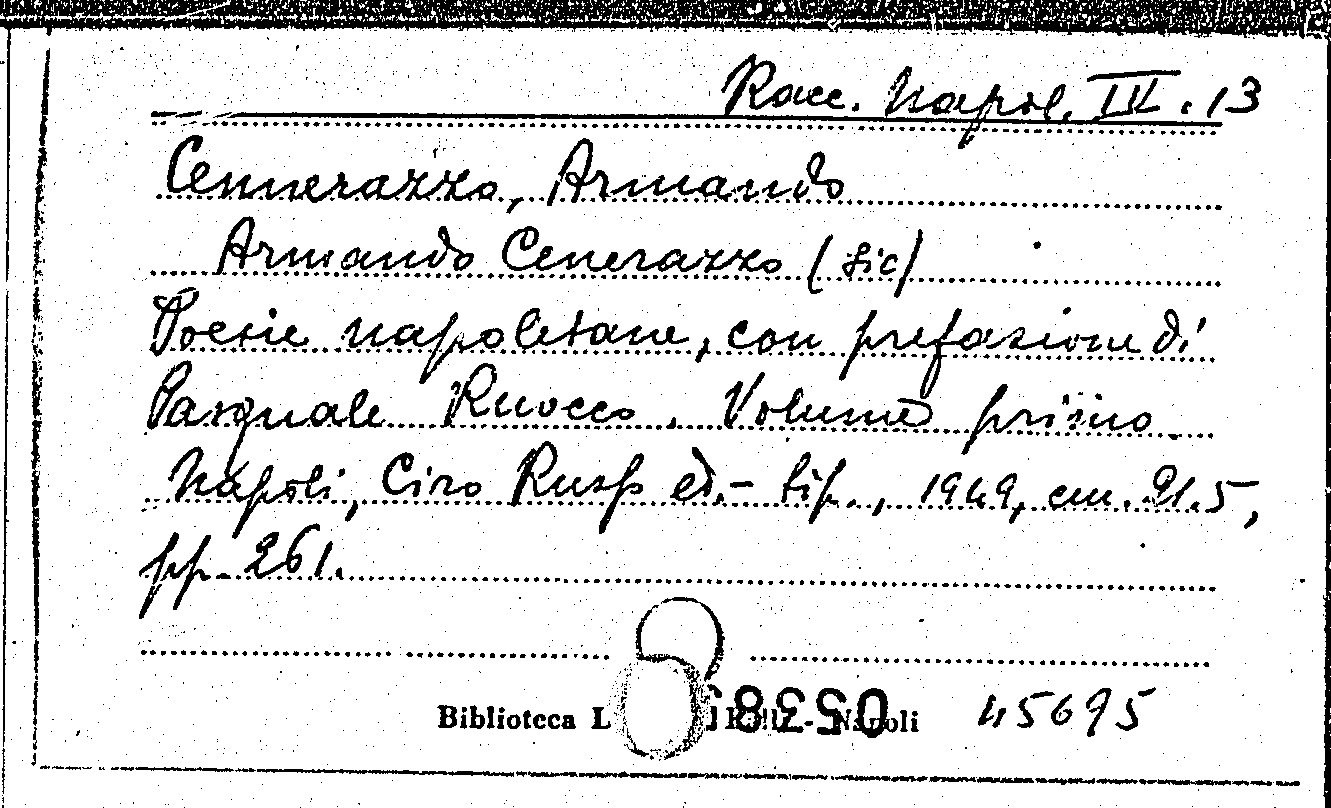 Racc. Napol. IV. 13
Cennerazzo, Armando
Armando Cenerazzo (sic)
Poesie napoletane, con prefazione di
Pasquale Ruocco. Volume primo
Napoli, Ciro Russo ed.- tip., 1949, cm. 21.5,
pp. 261.
Biblioteca L - Napoli 45695